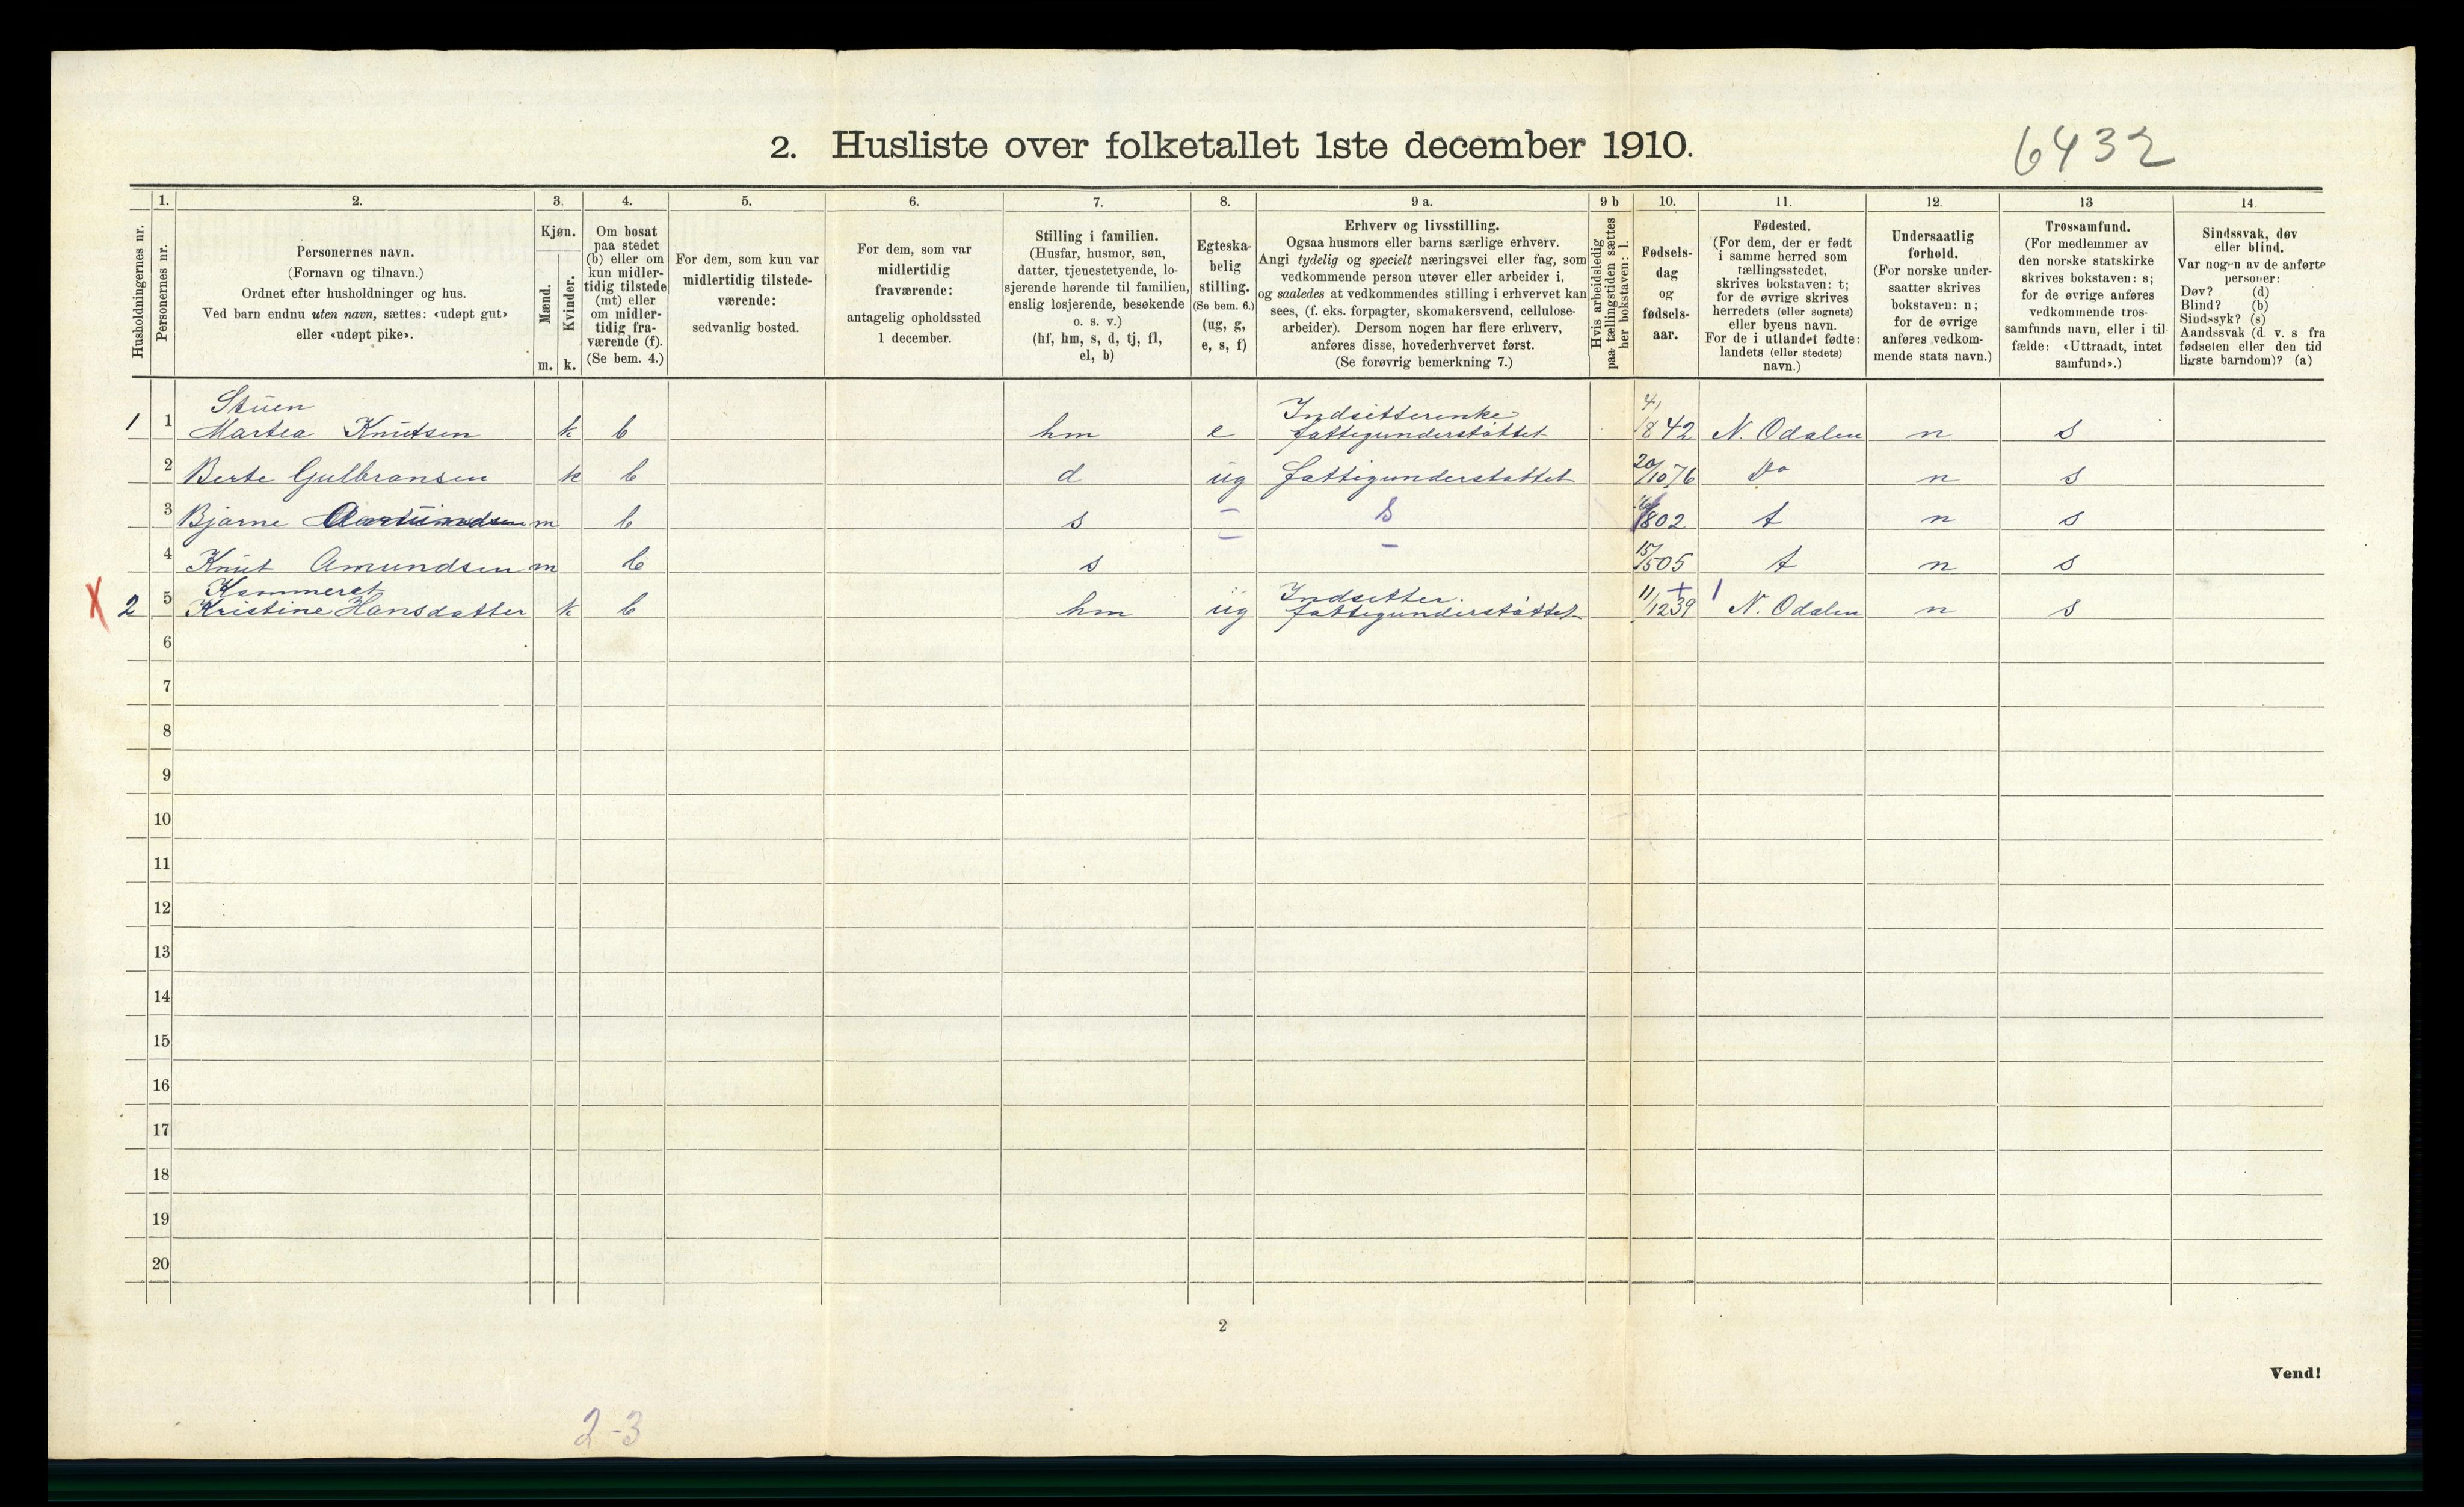 2. Husliste over folketallet 1ste december 1910.
6432
Husholdningernes nr.
1.
Personernes nr.
2.
Personernes navn.
(Fornavn og tilnavn.)
Ordnet efter husholdninger og hus.
Ved barn endnu uten navn, sættes: «udøpt gut»
eller «udøpt pike».
3.
Kjøn.
Mænd.
Kvinder.
m. k.
4.
Om bosat
paa stedet
(b) eller om
kun midler-
tidig tilstede
(mt) eller
om midler-
tidig fra-
værende (f).
(Se bem. 4.)
5.
For dem, som kun var
midlertidig tilstede-
værende:
sedvanlig bosted.
6.
For dem, som var
midlertidig
fraværende:
antagelig opholdssted
1 december.
7.
Stilling i familien.
(Husfar, husmor, søn,
datter, tjenestetyende, lo-
sjerende hørende til familien,
enslig losjerende, besøkende
o. s. v.)
(hf, hm, s, d, tj, fl,
el, b)
8.
Egteska-
belig
stilling.
(Se bem. 6.)
(ug, g,
e, s, f)
9 a.
Erhverv og livsstilling.
Ogsaa husmors eller barns særlige erhverv.
Angi tydelig og specielt næringsvei eller fag, som
vedkommende person utøver eller arbeider i,
og saaledes at vedkommendes stilling i erhvervet kan
sees, (f. eks. forpagter, skomakersvend, cellulose-
arbeider). Dersom nogen har flere erhverv,
anføres disse, hovederhvervet først.
(Se forøvrig bemerkning 7.)
9 b
Hvis arbeidsledig
paa tællingstiden sættes
her bokstaven: l.
10.
Fødsels-
dag
og
fødsels-
aar.
11.
Fødested.
(For dem, der er født
i samme herred som
tællingsstedet,
skrives bokstaven: t;
for de øvrige skrives
herredets (eller sognets)
eller byens navn.
For de i utlandet fødte:
landets (eller stedets)
navn.)
12.
Undersaatlig
forhold.
(For norske under-
saatter skrives
bokstaven: n;
for de øvrige
anføres vedkom-
mende stats navn.)
13
Trossamfund.
(For medlemmer av
den norske statskirke
skrives bokstaven: s;
for de øvrige anføres
vedkommende tros-
samfunds navn, eller i til-
fælde: «Uttraadt, intet
samfund».)
14
Sindssvak, døv
eller blind.
Var nogen av de anførte
personer:
Døv? (d)
Blind? (b)
Sindssyk? (s)
Aandssvak (d. v. s fra
fødselen eller den tid
ligste barndom)? (a)
Stuen Indsitterenke
1 1 Martea Knutsen k b hm e fattigunderstøttet 4/1842 N. Odalen n s
2 Berte Gulbransen k b d ug fattigunderstøttet 20/1076 Do n s
3 Bjarne m b s - s 02 t n s
4 Knut Amundsen m b s - - 15/505 t n s
Kammeret Indsitter
X 2 5 Kristine Hansdatter k b hm ug fattigunderstøttet 11/1239 N. Odalen n s
6
7
8
9
10
11
12
13
14
15
16
17
18
19
20
2
Vend!
2-3